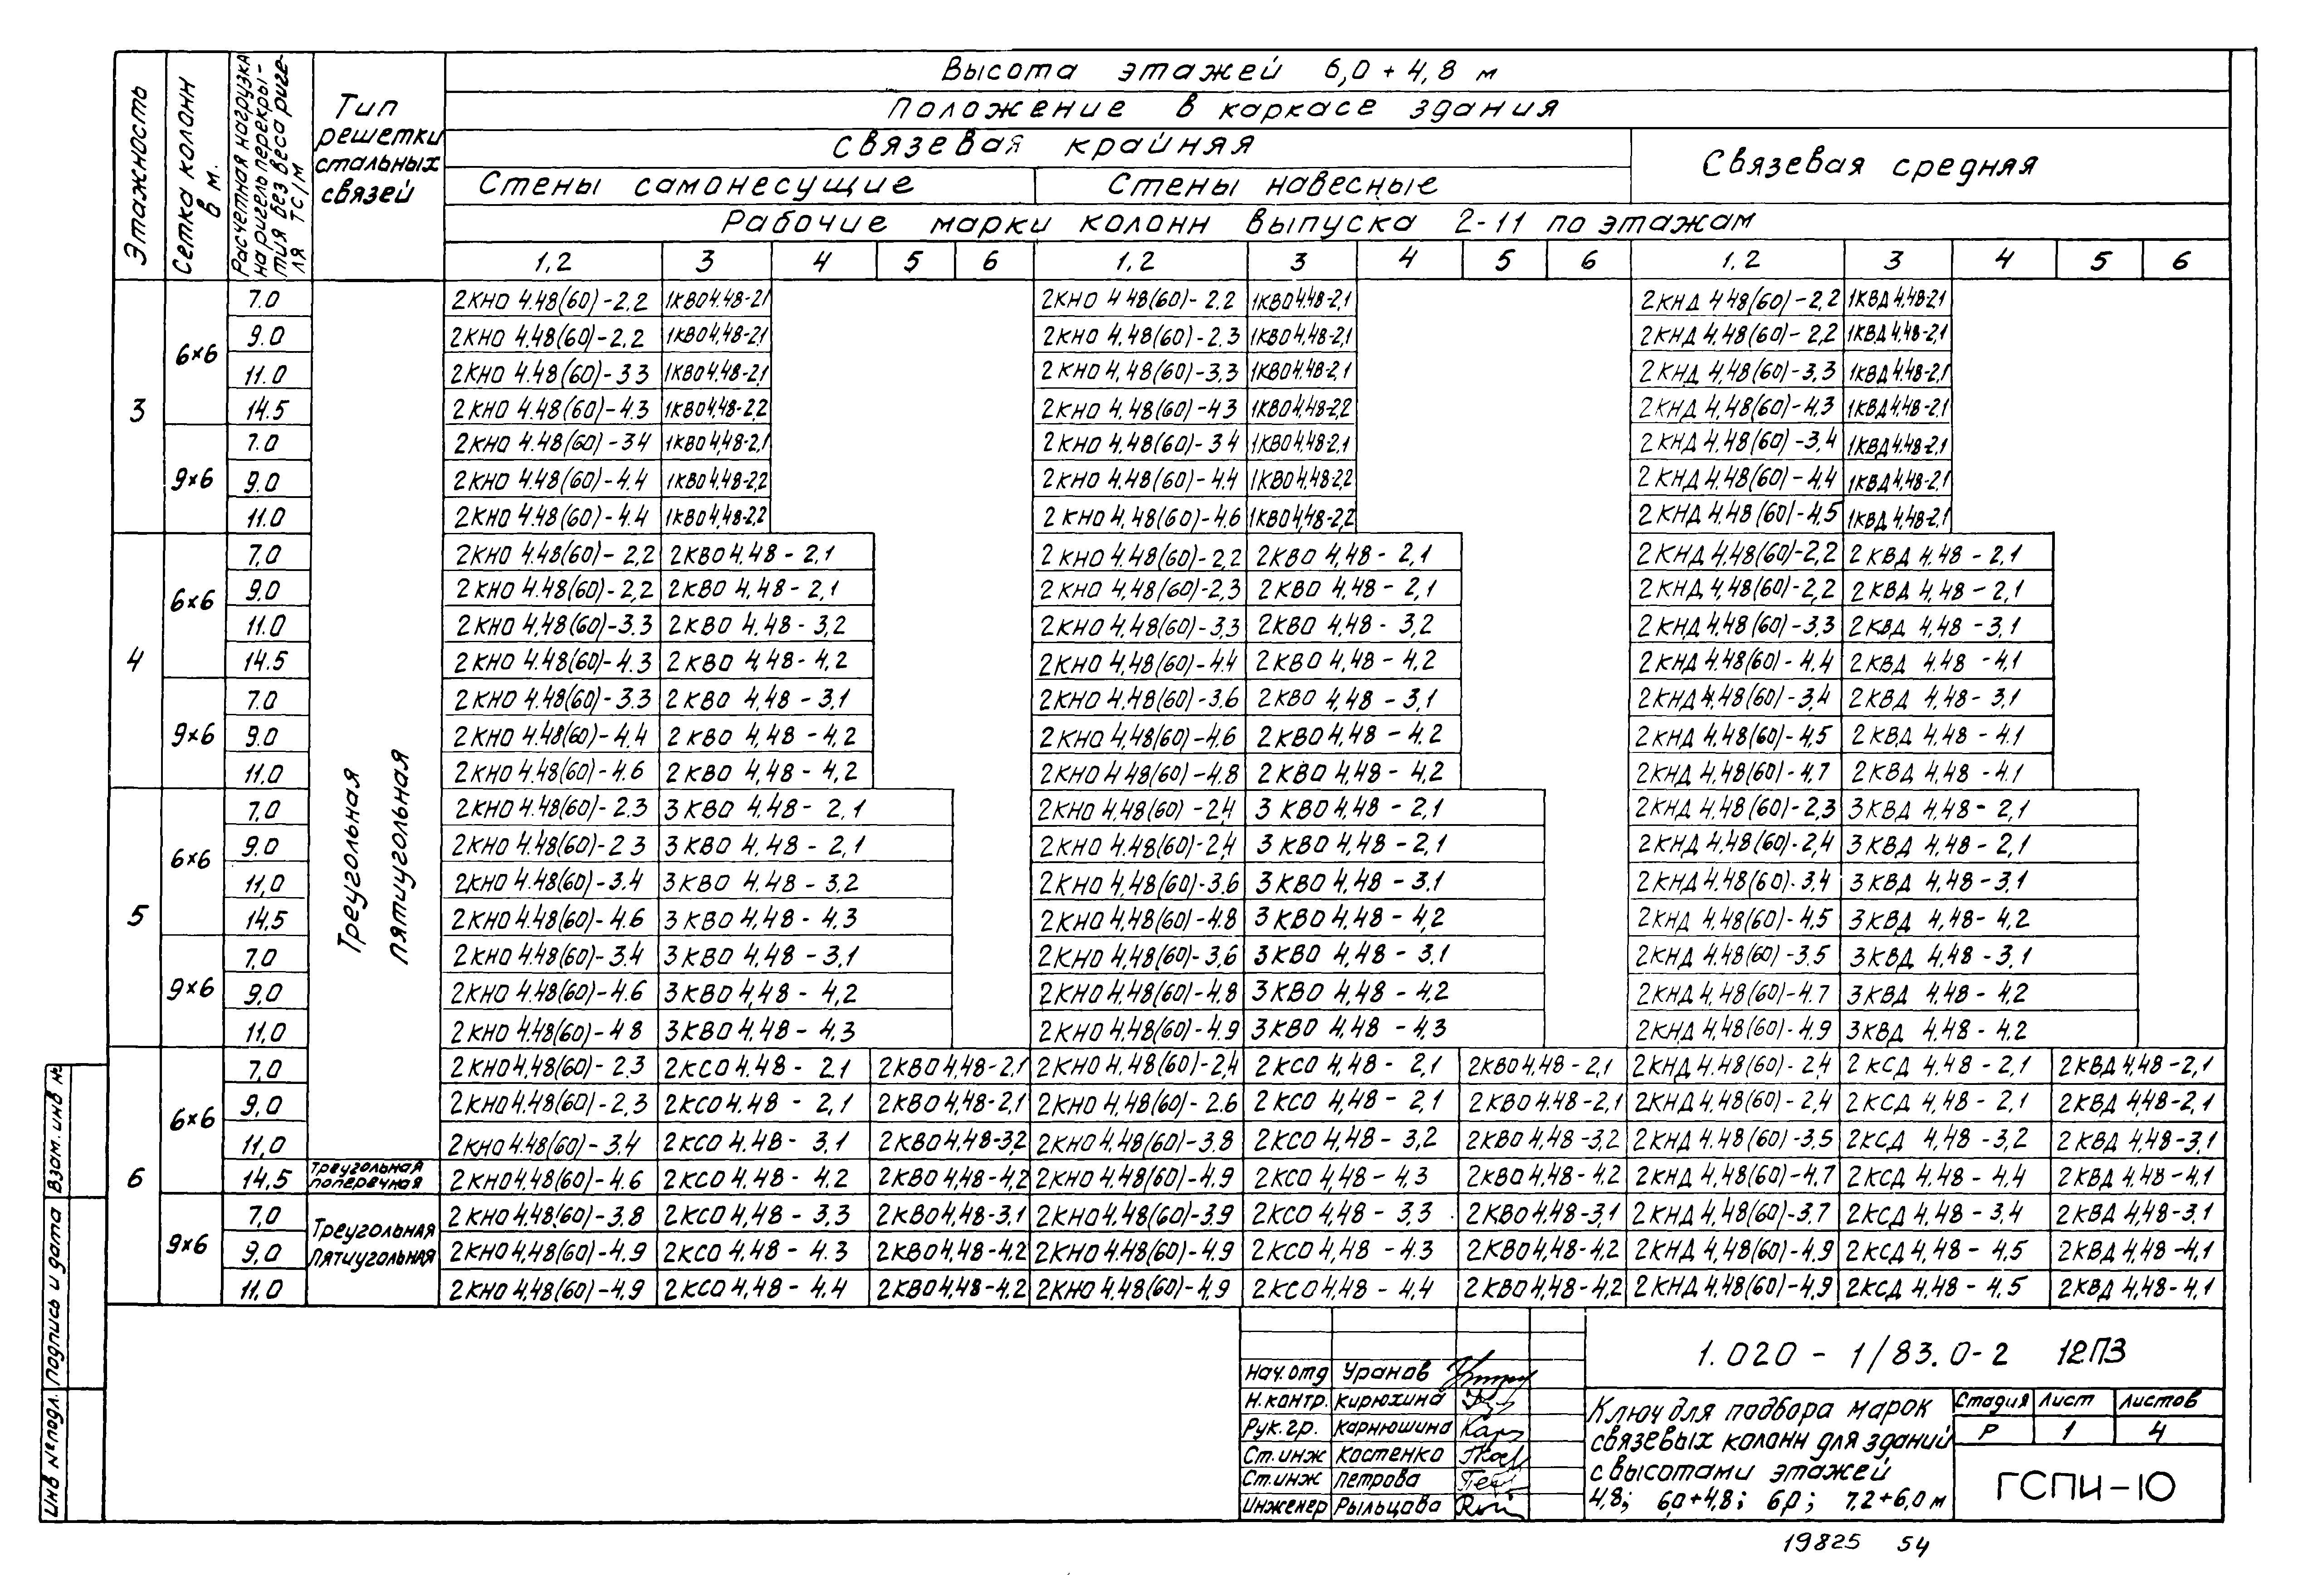 Высота этажей 6,0 + 4,8 м
Положение в каркасе здания
связевая крайняя
Связевая средняя
Стены самонесущие
Стены навесные
Рабочие марки колонн выпуска 2-11 по этажам
Этажность
Сетка колонн
в м.
Расчетная нагрузка
на ригель перекры-
тия без веса риге-
ля тс/м
Тип
решетки
стальных
связей
1,2 3 4 5 6 1,2 3 4 5 6 1,2 3 4 5 6
Треугольная
пятиугольная
3
6×6
7.0 2КНО 4.48(60)-2,2 1КВО4.48-2.1 2КНО 4.48(60)-2.2 1КВО4,48-2,1 2КНД 4.48(60)-2,2 1КВД4,48-2.1
9.0 2КНО 4.48(60)-2,2 1КВО4,48-2,1 2КНО 4.48(60)-2.3 1КВО4,48-2,1 2КНД 4,48(60)-2,2 1КВД4.48-2,1
11.0 2КНО 4.48(60)-3 3 1КВО4,48-2,1 2КНО 4,48(60)-3,3 1КВО4.48-2,1 2КНД 4,48(60)-3,3 1КВД4.48-2,1
14.5 2КНО 4.48(60)-4.3 1КВО4,48-2,2 2КНО 4,48(60)-4 3 1КВО4,48-2,2 2КНД 4,48(60)-4,3 1КВД4.48-2.1
9×6
7.0 2КНО 4.48(60)-34 1КВО4,48-2,1 2КНО 4.48(60)-3 4 1КВО4,48-2,1 2КНД 4.48(60)-3,4 1КВД4.48-2,1
9.0 2КНО 4.48(60)-4.4 1КВО4,48-2,2 2КНО 4.48(60)-4.4 1КВО4,48-2,2 2КНД 4,48(60)-4,4 1КВД4,48-2,1
11.0 2КНО 4.48(60)-4.4 1КВО4,48-2,2 2КНО 4,48(60)-4.6 1КВО4,48-2,2 2КНД 4.48(60)-4.5 1КВД4,48-2,1
4
6×6
7,0 2КНО 4.48(60)-2,2 2КВО4.48-2,1 2КНО 4.48(60)-2,2 2КВО 4,48-2,1 2КНД 4.48(60)-2,2 2КВД 4.48-2,1
9.0 2КНО 4.48(60)-2,2 2КВО 4,48-2,1 2КНО 4,48(60)-2,3 2КВО 4,48-2,1 2КНД 4,48(60)-2,2 2КВД 4,48-2,1
11.0 2КНО 4,48(60)-3.3 2КВО 4,48-3,2 2КНО 4.48(60)-3,3 2КВО 4.48-3,2 2КНД 4.48(60)-3,3 2КВД 4,48-3,1
14.5 2КНО 4.48(60)-4.3 2КВО 4,48-4,2 2КНО 4,48(60)-4.4 2КВО 4,48-4,2 2КНД 4.48(60)-4.4 2КВД 4.48-4,1
9×6
7.0 2КНО 4.48(60)-3.3 2КВО 4,48-3,1 2КНО 4.48(60)-3.6 2КВО 4,48-3,1 2КНД 4.48(60)-3,4 2КВД 4,48-3,1
9.0 2КНО 4.48(60)-4.4 2КВО 4,48-4,2 2КНО 4,48(60)-4.6 2КВО4,48-4.2 2КНД 4.48(60)-4,5 2КВД 4,48-4.1
11.0 2КНО 4.48(60)-4.6 2КВО 4,48-4,2 2КНО 4.48(60)-4.8 2КВО 4,48-4,2 2КНД 4,48(60)-4,7 2КВД 4,48-4.1
5
6×6
7,0 2КНО 4.48(60)-2.3 3КВО 4.48-2,1 2КНО 4.48(60)-2,4 3КВО4,48-2,1 2КНД 4.48(60)-2,3 3КВД 4,48-2,1
9.0 2КНО 4.48(60)-2 3 3КВО 4.48-2,1 2КНО 4.48(60)-2,4 3КВО 4,48-2,1 2КНД 4.48(60)-2,4 3КВД 4,48-2,1
11,0 2КНО 4.48(60)-3.4 3КВО 4.48-3,2 2КНО 4,48(60)-3.6 3КВО 4,48-3.1 2КНД 4.48(60)-3.4 3КВД 4.48-3,1
14,5 2КНО 4.48(60)-4.6 3КВО 4,48-4.3 2КНО 4.48(60)-4.8 3КВО 4,48-4,2 2КНД 4,48(60)-4,5 3КВД 4,48-4,2
9×6
7,0 2КНО 4.48(60)-3.4 3КВО 4.48-3.1 2КНО 4.48(60)-3,6 3КВО 4,48-3.1 2КНД 4.48(60)-3.5 3КВД 4,48-3,1
9,0 2КНО 4.48(60)-4.6 3КВО4,48-4,2 2КНО 4.48(60)-4,8 3КВО 4,48-4,2 2КНД 4,48(60)-4.7 3КВД 4.48-4,2
11,0 2КНО 4.48(60)-4 8 3КВО4.48-4.3 2КНО 4.48(60)-4.9 3КВО 4,48-4.3 2КНД 4,48(60)-4.9 3КВД 4.48-4.2
6
6×6
7,0 2КНО4.48(60)-2.3 2КСО4.48-2.1 2КВО4,48-2,1 2КНО 4.48(60)-2,4 2КСО 4.48-2,1 2КВО4,48-2,1 2КНД 4.48(60)-2,4 2КСД 4.48-2,1 2КВД4,48-2,1
9,0 2КНО4.48(60)-2,3 2КСО4.48-2,1 2КВО4,48-2,1 2КНО 4.48(60)-2.6 2КСО 4,48-2,1 2КВО4.48-2,1 2КНД 4.48(60)-2,4 2КСД 4,48-2,1 2КВД 4,48-2,1
11,0 2КНО4.48(60)-3.4 2КСО4.48-3.1 2КВО4,48-3,2 2КНО 4.48(60)-3.8 2КСО 4,48-3,2 2КВО4.48-3,2 2КНД 4.48(60)-3,5 2КСД 4.48-3,2 2КВД 4,48-3,1
14,5 Треугольная поперечная 2КНО4.48(60)-4.6 2КСО4.48-4.2 2КВО4,48-4,2 2КНО4.48(60)-4.9 2КСО 4,48-4,3 2КВО4.48-4,2 2КНД 4,48(60)-4,7 2КСД 4.48-4,4 2КВД 4.48-4,1
9×6
Треугольная
пятиугольная
7,0 2КНО4.48(60)-3.8 2КСО4,48-3,3 2КВО4,48-3,1 2КНО4.48(60)-3.9 2КСО 4,48-3,3 2КВО4,48-3,1 2КНД 4.48(60)-3,7 2КСД 4.48-3.4 2КВД 4,48-3.1
9,0 2КНО4,48(60)-4.9 2КСО4,48-4.3 2КВО4,48-4.2 2КНО4.48(60)-4.9 2КСО 4,48-4.3 2КВО4,48-4,2 2КНД 4,48(60)-4.9 2КСД 4,48-4,5 2КВД 4,48-4,1
11.0 2КНО4,48(60)-4,9 2КСО4,48-4.4 2КВО4,48-4.2 2КНО4.48(60)-4.9 2КСО4,48-4,4 2КВО4,48-4,2 2КНД 4,48(60)-4,9 2КСД 4,48-4,5 2КВД 4,48-4,1
Взам. инв №
Подпись и дата
Инв № подл.
Нач. отд Уранов
Н. контр. Кирюхина
Рук. гр. Карнюшина
Ст. инж Костенко
Ст. инж Петрова
Инженер Рыльцова
1.020 - 1/83.0-2 12ПЗ
Ключ для подбора марок
связевых колонн для зданий
с высотами этажей
4,8; 6,0+4,8; 6,0; 7,2+6,0 м
Стадия Лист Листов
Р 1 4
ГСПИ-10
19825 54